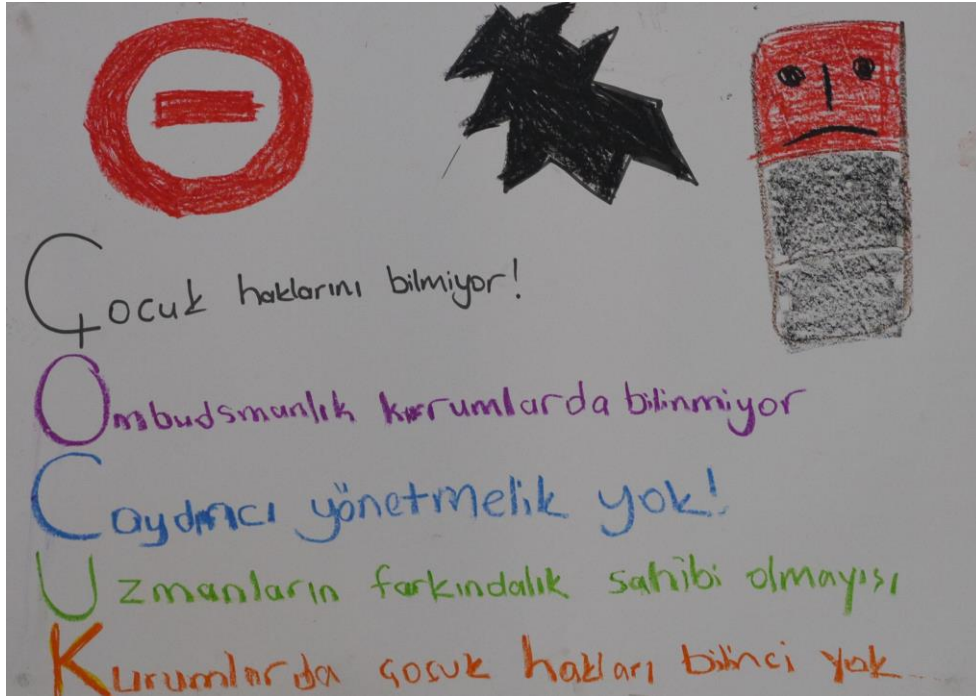 Çocuk haklarını bilmiyor!
Ombudsmanlık kurumlarda bilinmiyor
Caydırıcı yönetmelik yok!
Uzmanların farkındalık sahibi olmayışı
Kurumlarda çocuk hakları bilinci yok